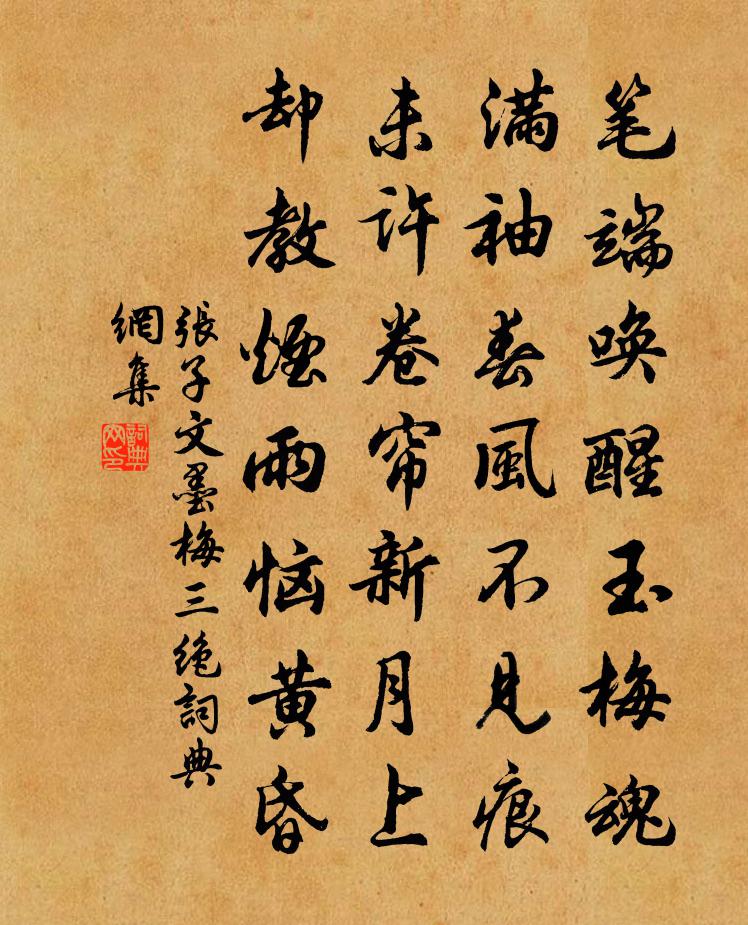 笔端唤醒玉梅魂
满袖春風不見痕
未许卷帘新月上
却教煙雨恼黄昏
張子文墨梅三绝詞典
網集
詞典
网印